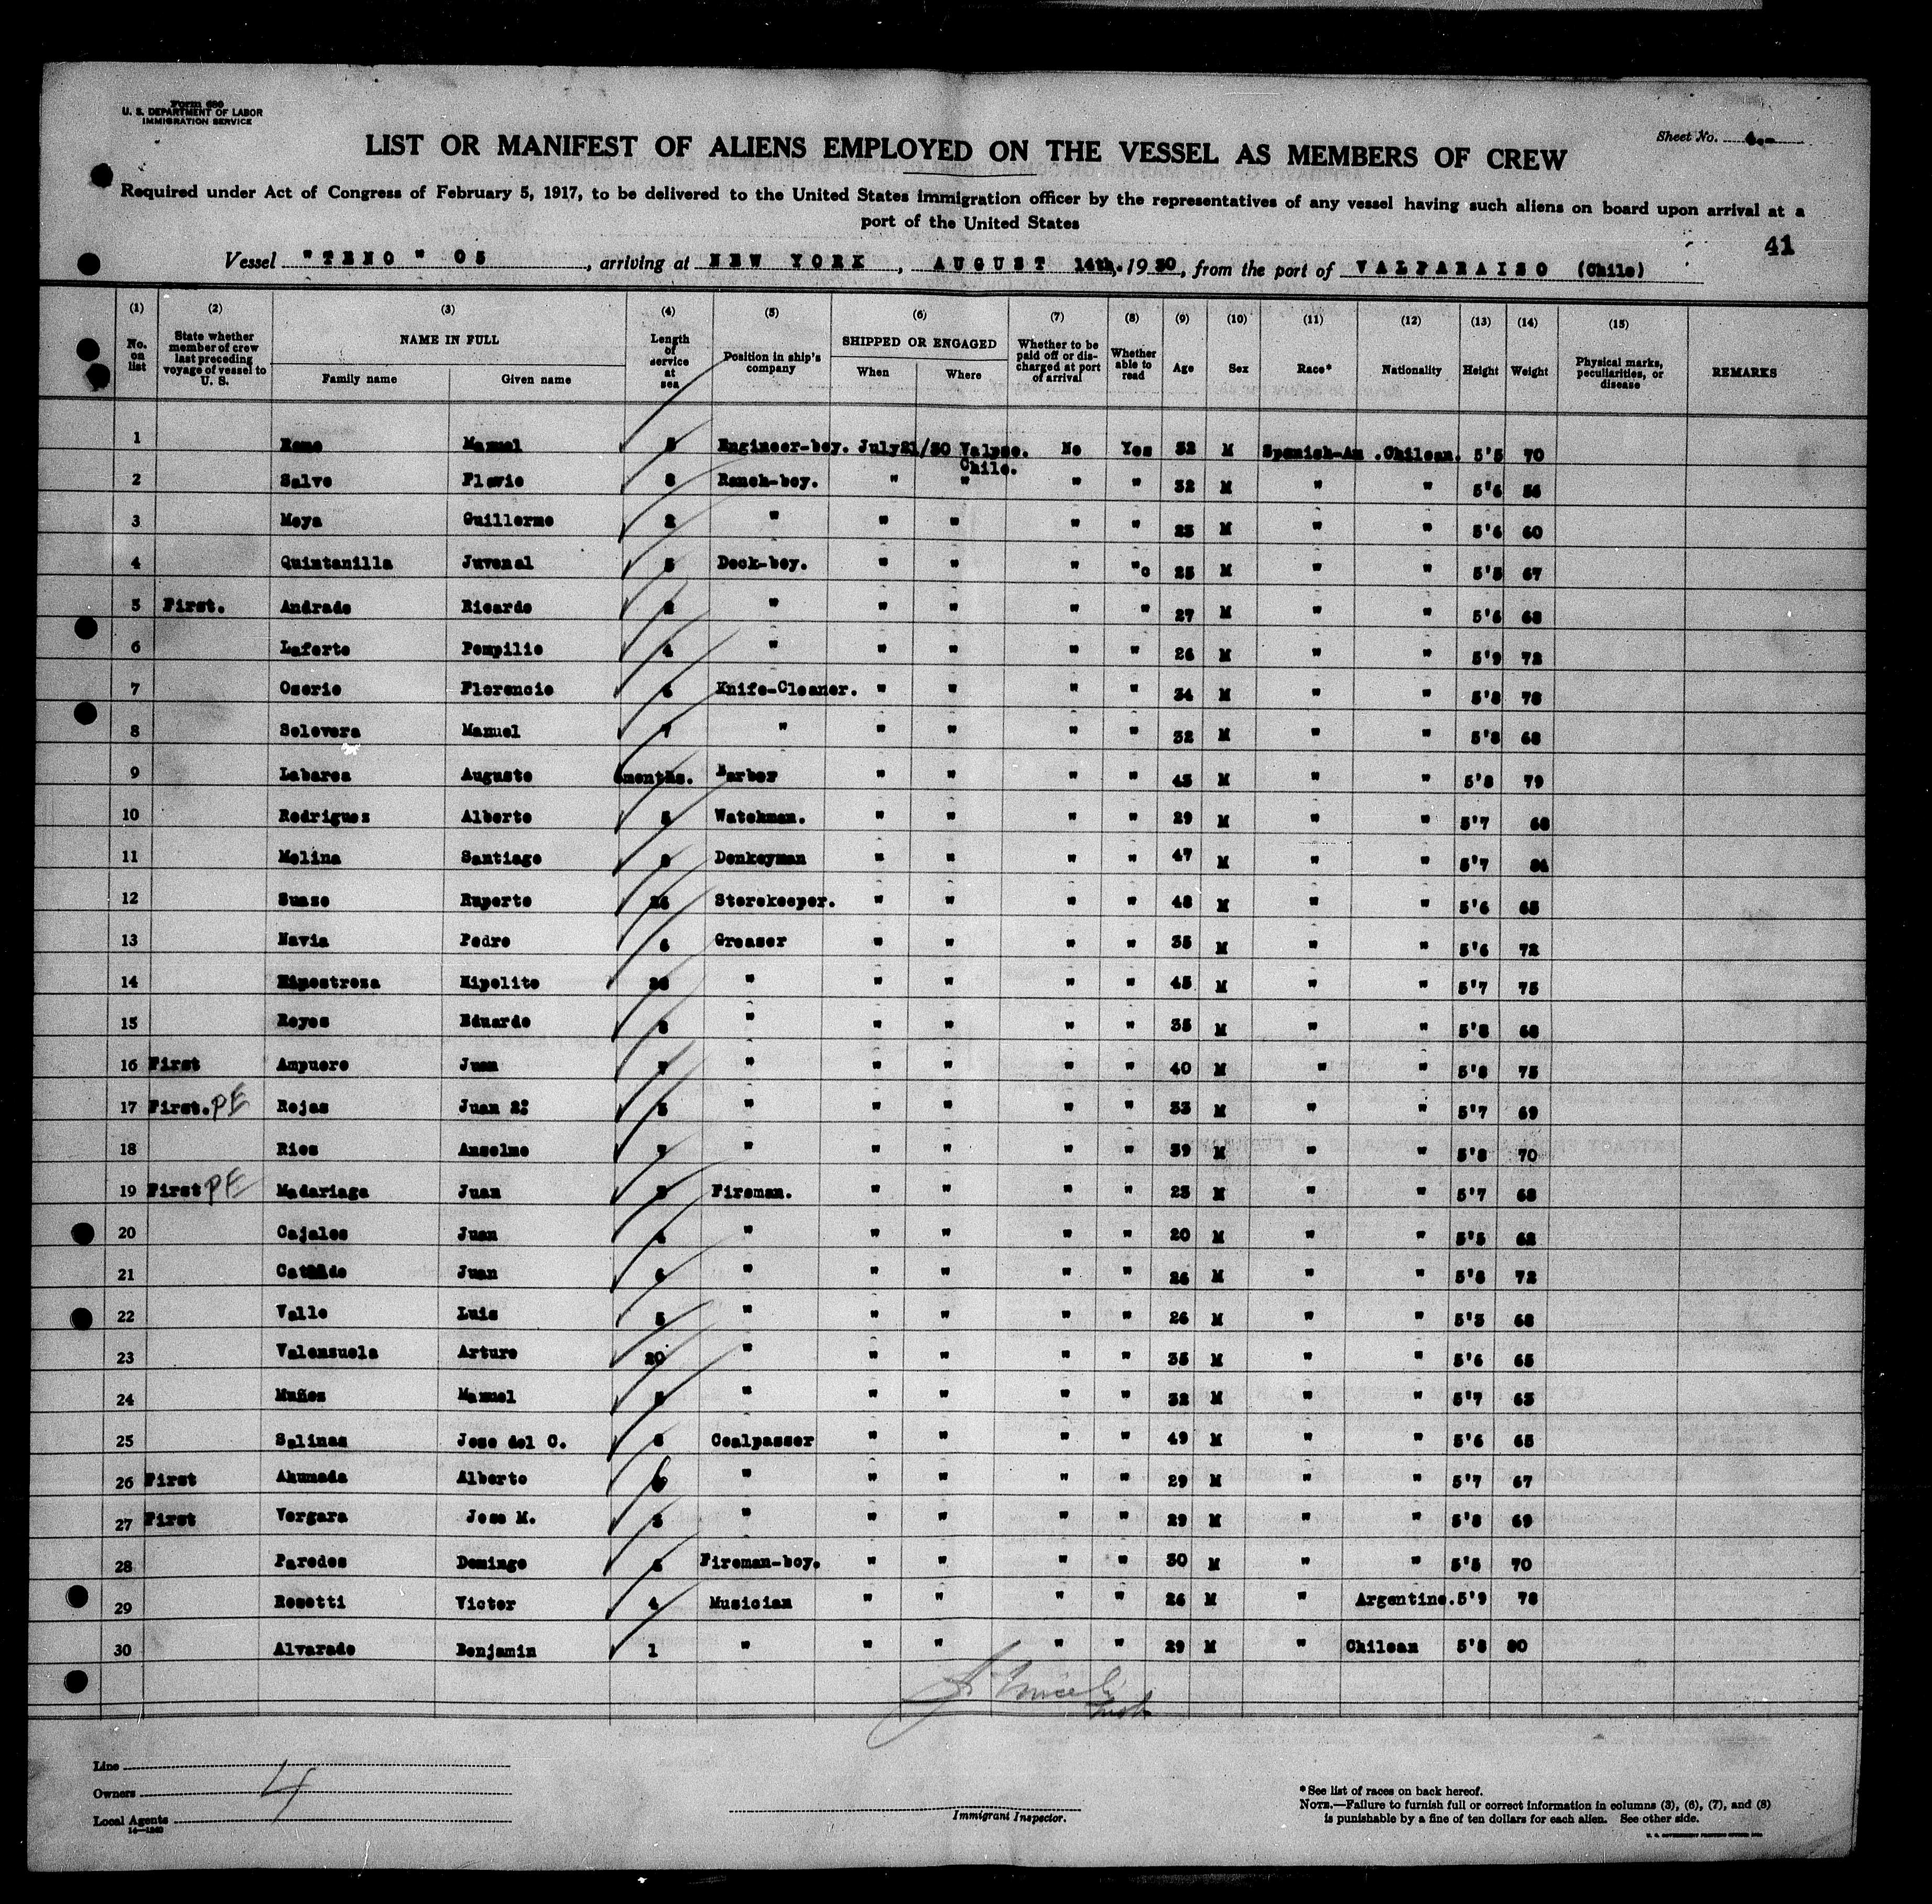 Form 680
U. S. DEPARTMENT OF LABOR
IMMIGRATION SERVICE
Sheet No.
LIST OR MANIFEST OF ALIENS EMPLOYED ON THE VESSEL AS MEMBERS OF CREW
Required under Act of Congress of February 5, 1917, to be delivered to the United States immigration officer by the representatives of any vessel having such aliens on board upon arrival at a
port of the United States
41
Vessel "TENO" 05, arriving at NEW YORK, AUGUST 14th. 1930, from the port of VALPARAISO (Chile)
(1) (2) (3) (4) (5) (6) (7) (8) (9) (10) (11) (12) (13) (14) (15)
No. on list State whether member of crew last preceding voyage of vessel to U. S. NAME IN FULL Family name Given name Length of service at sea Position in ship's company SHIPPED OR ENGAGED When Where Whether to be paid off or discharged at port of arrival Whether able to read Age Sex Race* Nationality Height Weight Physical marks, peculiarities, or disease REMARKS
1 Romo Manuel Engineer-boy. July21/30 Valpso. Chile. No Yes 32 M Spanish-Am. Chilean. 5'5 70
2 Salvo Flavio 8 Ranch-boy. " " " " 32 M " " 5'6 56
3 Moya Guillermo 2 " " " " " 25 M " " 5'6 60
4 Quintanilla Juvenal 5 Deck-boy. " " " " 25 M " " 5'5 67
5 First. Andrade Ricardo " " " " " 27 M " " 5'6 68
6 Laferte Pompilio 4 " " " " " 26 M " " 5'9 72
7 Osorio Florencio 6 Knife-Cleaner. " " " " 34 M " " 5'8 78
8 Solovera Manuel 7 " " " " " 32 M " " 5'8 68
9 Labarca Augusto months. Barber " " " " 45 M " " 5'8 79
10 Rodriguez Alberto 5 Watchman. " " " " 29 M " " 5'7 68
11 Molina Santiago Donkeyman " " " " 47 M " " 5'7 84
12 Suazo Ruperto Storekeeper. " " " " 48 M " " 5'6 65
13 Navia Pedro 6 Greaser " " " " 35 M " " 5'6 72
14 Hipolito " " " " " 45 M " " 5'7 75
15 Reyes Eduardo 8 " " " " " 35 M " " 5'8 68
16 First Ampuero Juan 7 " " " " " 40 M " " 5'8 75
17 First. PE Rojas Juan 2: 5 " " " " " 33 M " " 5'7 69
18 Rios Anselmo 7 " " " " " 39 M " " 5'8 70
19 First PE Madariaga Juan Fireman. " " " " 25 M " " 5'7 68
20 Cajales Juan " " " " " 20 M " " 5'5 62
21 Juan 6 " " " " " 26 M " " 5'8 72
22 Valle Luis 5 " " " " " 26 M " " 5'5 68
23 Valenzuela Arturo 20 " " " " " 35 M " " 5'6 65
24 Muñoz Manuel " " " " " 32 M " " 5'7 63
25 Salinas Jose del C. 6 Coalpasser " " " " 49 M " " 5'6 65
26 First Ahumada Alberto " " " " " 29 M " " 5'7 67
27 First Vergara Jose M. 3 " " " " " 29 M " " 5'8 69
28 Paredes Domingo 6 Fireman-boy. " " " " 30 M " " 5'5 70
29 Rosetti Victor 4 Musician " " " " 26 M " Argentine. 5'9 78
30 Alvarado Benjamin 1 " " " " " 29 M " Chilean 5'8 80
Line
Owners
4
Local Agents
14—1240
Immigrant Inspector.
*See list of races on back hereof.
NOTE.—Failure to furnish full or correct information in columns (3), (6), (7), and (8)
is punishable by a fine of ten dollars for each alien. See other side.